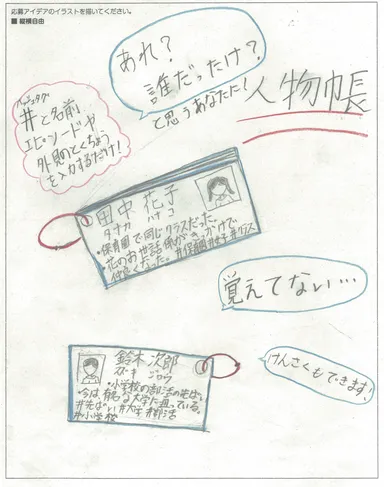 応募アイデアのイラストを描いてください。
■ 縦横自由
あれ?
誰だったけ?
と思うあなたに!
人物帳
ハッシュタグ
#と名前
エピソードや
外見のとくちょう
を入力するだけ!
田中 花子
タナカ ハナコ
・保育園で同じクラスだった。
・花のお世話係がきっかけで
仲良くなった。#保育園#女子#クラス
覚えてない…
鈴木次郎
スズキ ジロウ
・小学校の部活の先ぱい
・今は有名な大学に通っている。
#先ぱい#大学#部活
#小学校
けんさくもできます!